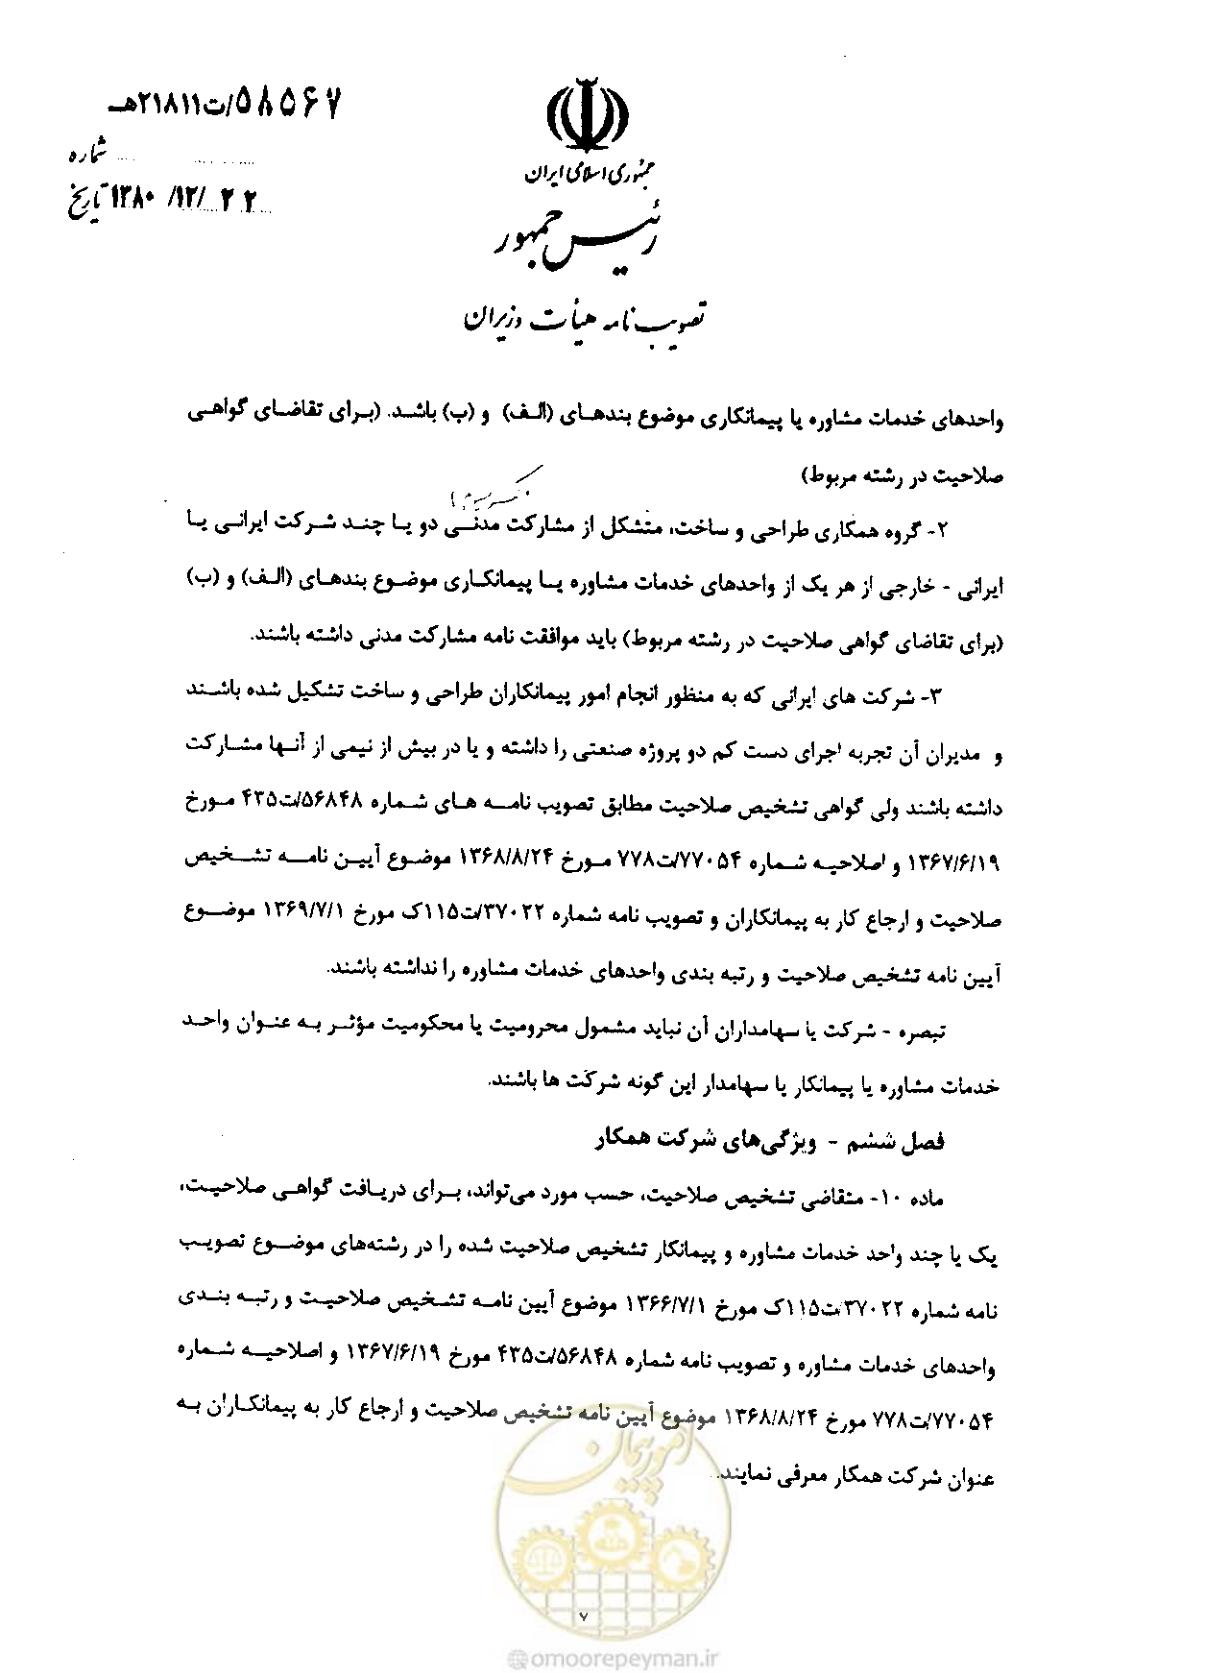 ۵۸۵۶۷/ت۲۱۸۱۱هـ
شماره
تاریخ ۱۳۸۰/۱۲/۲۲
جمهوری اسلامی ایران
رئیس جمهور
تصویب نامه هیأت وزیران
واحدهای خدمات مشاوره یا پیمانکاری موضوع بندهای (الف) و (ب) باشد. (برای تقاضای گواهی
صلاحیت در رشته مربوط)
۲- گروه همکاری طراحی و ساخت، متشکل از مشارکت مدنی دو یا چند شرکت ایرانی یا
ایرانی - خارجی از هر یک از واحدهای خدمات مشاوره یا پیمانکاری موضوع بندهای (الف) و (ب)
(برای تقاضای گواهی صلاحیت در رشته مربوط) باید موافقت نامه مشارکت مدنی داشته باشند.
۳- شرکت های ایرانی که به منظور انجام امور پیمانکاران طراحی و ساخت تشکیل شده باشند
و مدیران آن تجربه اجرای دست کم دو پروژه صنعتی را داشته و یا در بیش از نیمی از آنها مشارکت
داشته باشند ولی گواهی تشخیص صلاحیت مطابق تصویب نامه های شماره ۵۶۸۴۸/ت۴۳۵ مورخ
۱۳۶۷/۶/۱۹ و اصلاحیه شماره ۷۷۰۵۴/ت۷۷۸ مورخ ۱۳۶۸/۸/۲۴ موضوع آیین نامه تشخیص
صلاحیت و ارجاع کار به پیمانکاران و تصویب نامه شماره ۳۷۰۲۲/ت۱۱۵ک مورخ ۱۳۶۹/۷/۱ موضوع
آیین نامه تشخیص صلاحیت و رتبه بندی واحدهای خدمات مشاوره را نداشته باشند.
تبصره - شرکت یا سهامداران آن نباید مشمول محرومیت یا محکومیت مؤثر به عنوان واحد
خدمات مشاوره یا پیمانکار یا سهامدار این گونه شرکت ها باشند.
فصل ششم - ویژگی‌های شرکت همکار
ماده ۱۰- متقاضی تشخیص صلاحیت، حسب مورد می‌تواند، برای دریافت گواهی صلاحیت،
یک یا چند واحد خدمات مشاوره و پیمانکار تشخیص صلاحیت شده را در رشته‌های موضوع تصویب
نامه شماره ۳۷۰۲۲/ت۱۱۵ک مورخ ۱۳۶۶/۷/۱ موضوع آیین نامه تشخیص صلاحیت و رتبه بندی
واحدهای خدمات مشاوره و تصویب نامه شماره ۵۶۸۴۸/ت۴۳۵ مورخ ۱۳۶۷/۶/۱۹ و اصلاحیه شماره
۷۷۰۵۴/ت۷۷۸ مورخ ۱۳۶۸/۸/۲۴ موضوع آیین نامه تشخیص صلاحیت و ارجاع کار به پیمانکاران به
عنوان شرکت همکار معرفی نمایند.
امور پیمان
۷
omoorepeyman.ir